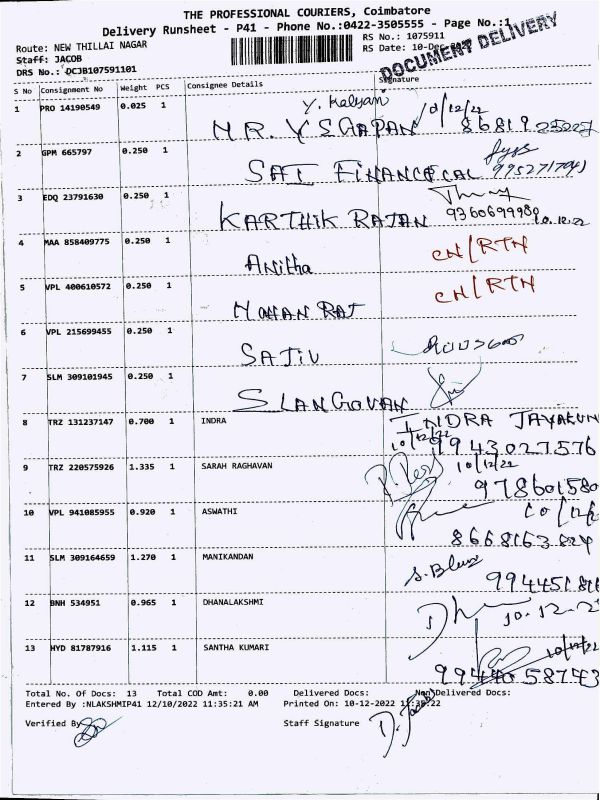 THE PROFESSIONAL COURIERS, Coimbatore
Delivery Runsheet - P41 - Phone No.:0422-3505555 - Page No.:1
Route: NEW THILLAI NAGAR RS No.: 1075911
Staff: JACOB RS Date: 10-Dec-2022
DRS No.: DCJB107591101
DOCUMENT DELIVERY
S No Consignment No Weight PCS Consignee Details Signature
1 PRO 14190549 0.025 1 Y. Kalyani 10/12/22
MR. Y S 86819 25227
2 GPM 665797 0.250 1
SAI FINANCECAL 9952717041
3 EDQ 23791630 0.250 1
KARTHIK RAJAN 9360699980 10.12.22
4 MAA 858409775 0.250 1
Anitha CN/RTN
5 VPL 400610572 0.250 1
MOHAN RAJ CN/RTN
6 VPL 215699455 0.250 1
SAJIV
7 SLM 309101945 0.250 1
SLANGOVAN
8 TRZ 131237147 0.700 1 INDRA INDRA JAYAKUM
10/12/22 9943027576
9 TRZ 220575926 1.335 1 SARAH RAGHAVAN 10/12/22
978601580
10 VPL 941085955 0.920 1 ASWATHI 10/12/2
8668163824
11 SLM 309164659 1.270 1 MANIKANDAN
994451816
12 BNH 534951 0.965 1 DHANALAKSHMI
10.12.2
13 HYD 81787916 1.115 1 SANTHA KUMARI 10/12/22
58743
Total No. Of Docs: 13 Total COD Amt: 0.00 Delivered Docs: Non Delivered Docs:
Entered By :NLAKSHMIP41 12/10/2022 11:35:21 AM Printed On: 10-12-2022 11:35:22
Verified By Staff Signature
D. Jacob